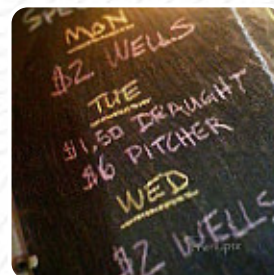 SPE
MON
$2 WELLS
TUE
$1.50 DRAUGHT
$6 PITCHER
WED
$2 WELLS